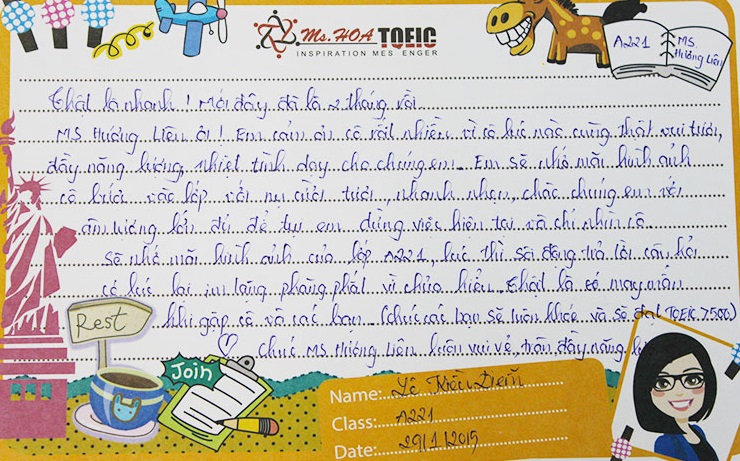 Ms. HOA TOEIC
INSPIRATION MES ENGER
A221
MS.
Hường Liên
Thật là nhanh! Mới đây đã là 2 tháng rồi
MS Hường Liên ơi! Em cảm ơn cô rất nhiều vì cô lúc nào cũng thật vui tươi,
đầy năng lượng, nhiệt tình dạy cho chúng em. Em sẽ nhớ mãi hình ảnh
cô bước vào lớp với nụ cười tươi, nhanh nhẹn, chào chúng em với
âm lượng lớn đủ để tụi em dừng việc hiện tại và chỉ nhìn cô.
Sẽ nhớ mãi hình ảnh của lớp A221, lúc thì sôi động trả lời câu hỏi
có lúc lại im lặng phăng phắt vì chưa hiểu. Thật là có may mắn
khi gặp cô và các bạn. (chúc các bạn sẽ luôn khoẻ và sẽ đạt TOEIC 7500)
Chúc MS Hường Liên luôn vui vẻ, tràn đầy năng
Rest
Join
Name: Lê Kiều Diễm
Class: A221
Date: 29/1/2015